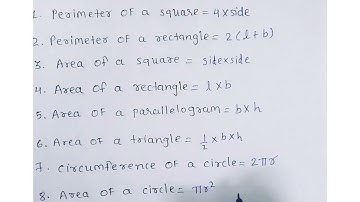 1. Perimeter of a square = 4×side
2. Perimeter of a rectangle = 2(l+b)
3. Area of a square = side×side
4. Area of a rectangle = l×b
5. Area of a parallelogram = b×h
6. Area of a triangle = 1/2 × b×h
7. Circumference of a circle = 2πr
8. Area of a circle = πr²